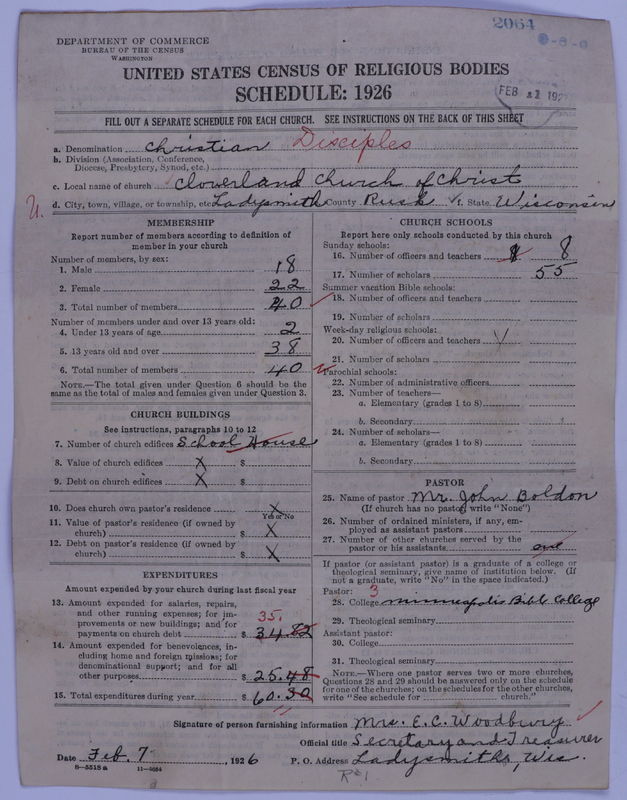 2064
DEPARTMENT OF COMMERCE
BUREAU OF THE CENSUS
WASHINGTON
UNITED STATES CENSUS OF RELIGIOUS BODIES
SCHEDULE: 1926
FEB 11 192
FILL OUT A SEPARATE SCHEDULE FOR EACH CHURCH. SEE INSTRUCTIONS ON THE BACK OF THIS SHEET
a. Denomination Christian Disciples
b. Division (Association, Conference, Diocese, Presbytery, Synod, etc.)
c. Local name of church Cloverland Church of Christ
U. d. City, town, village, or township, etc. Ladysmith County Rusk State Wisconsin
MEMBERSHIP
Report number of members according to definition of member in your church
Number of members, by sex:
1. Male 18
2. Female 22
3. Total number of members 40
Number of members under and over 13 years old:
4. Under 13 years of age 2
5. 13 years old and over 38
6. Total number of members 40
NOTE.—The total given under Question 6 should be the same as the total of males and females given under Question 3.
CHURCH BUILDINGS
See instructions, paragraphs 10 to 12
7. Number of church edifices School House
8. Value of church edifices X $
9. Debt on church edifices X $
10. Does church own pastor's residence X
Yes or No
11. Value of pastor's residence (if owned by church) $ X
12. Debt on pastor's residence (if owned by church) $ X
EXPENDITURES
Amount expended by your church during last fiscal year
13. Amount expended for salaries, repairs, and other running expenses; for improvements or new buildings; and for payments on church debt $ 34.82 35.
14. Amount expended for benevolences, including home and foreign missions; for denominational support; and for all other purposes $ 25.48
15. Total expenditures during year $ 60.30
CHURCH SCHOOLS
Report here only schools conducted by this church
Sunday schools:
16. Number of officers and teachers 8 8
17. Number of scholars 55
Summer vacation Bible schools:
18. Number of officers and teachers
19. Number of scholars
Week-day religious schools:
20. Number of officers and teachers
21. Number of scholars
Parochial schools:
22. Number of administrative officers
23. Number of teachers—
a. Elementary (grades 1 to 8)
b. Secondary
24. Number of scholars—
a. Elementary (grades 1 to 8)
b. Secondary
PASTOR
25. Name of pastor Mr. John Boldon
(If church has no pastor, write "None")
26. Number of ordained ministers, if any, employed as assistant pastors
27. Number of other churches served by the pastor or his assistants one
If pastor (or assistant pastor) is a graduate of a college or theological seminary, give name of institution below. (If not a graduate, write "No" in the space indicated.)
Pastor: 3
28. College Minneapolis Bible College
29. Theological seminary
Assistant pastor:
30. College
31. Theological seminary
NOTE.—Where one pastor serves two or more churches, Questions 28 and 29 should be answered only on the schedule for one of the churches; on the schedules for the other churches, write "See schedule for church."
Signature of person furnishing information Mrs. E. C. Woodbury
Official title Secretary and Treasurer
Date Feb. 7, 1926 P. O. Address Ladysmith, Wis.
8—5518 a 11—4664
R#1